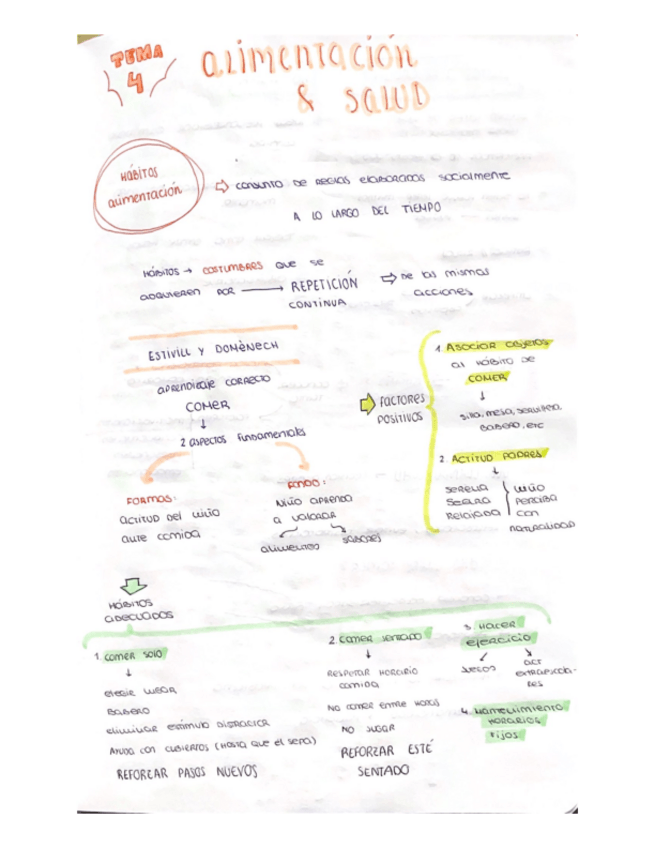 TEMA 4
alimentación
& SALUD
HÁBITOS
alimentación
⇨ CONJUNTO DE REGLAS ELABORADAS socialmente
A LO LARGO DEL TIEMPO
HÁBITOS → COSTUMBRES QUE se
ADQUIEREN POR → REPETICIÓN
CONTINUA
⇨ DE las mismas
acciones
ESTIVILL Y DOMÈNECH
APRENDIZAJE CORRECTO
COMER
↓
2 aspectos Fundamentales
FORMAS:
ACTITUD DEL NIÑO
ante comida
FONDO:
NIÑO APRENDA
a VALORAR
alimentos
SABORES
⇨ FACTORES
POSITIVOS
1. ASOCIAR OBJETOS
al HÁBITO DE
COMER
↓
silla, mesa, servilleta,
BABERO, etc
2. ACTITUD PADRES
↓
SERENA
SEGURA
RELAJADA
NIÑO
PERCIBA
CON
NATURALIDAD
HÁBITOS
ADECUADOS
1. COMER SOLO
↓
elegir LUGAR
BABERO
eliminar estímulo DISTRACTOR
AYUDA CON CUBIERTOS (HASTA QUE él SEPA)
REFORZAR PASOS NUEVOS
2. COMER SENTADO
↓
RESPETAR HORARIO
COMIDA
NO COMER ENTRE HORAS
NO JUGAR
REFORZAR ESTÉ
SENTADO
3. HACER
EJERCICIO
JUEGOS
ACT
EXTRAESCOLA-
RES
4. MANTENIMIENTO
HORARIOS
FIJOS